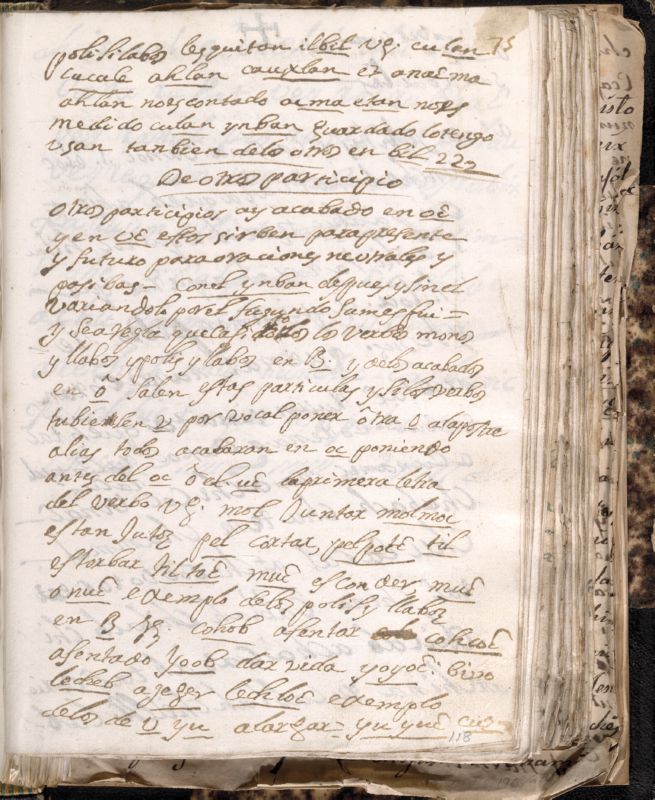 polisilabos les quitan il bil vg. culan 75
cucala ahlan cauxlan et anaema
ahlan no es contado ac ma etan no es
medido culan ynban guardado lo tengo
vsan tanbien de los otros en bil 22
De otro participio
otros participios ay acabado en oc
y en vc estos sirben para presente
y futuro para oraciones neutrales y
pasibas – con el ynban despues y sin el
variandolo por el segundo sum es fui –
y sea regla que casi todos los verbos mono
yllabos y polis yllabos en B. y de los acabados
en ô salen estas particulas y si los verbos
tubiesen v por vocal poner ôtra v a la postre
alias todos acabaran en oc poniendo
antes del oc ô el vc la primera letra
del verbo vg. mol Juntar molmoc
estan Jutos pel cortar, pelpoc til
estorbar tiltoc muc esconder muc
o muc exemplo de los polisyllabos
en B vg. cohob asentar cohcoc
asentado yoob dar vida yoyoc bivo
lecheb ageger lechloc exemplo
de los de v yu alargar – yu yuc cuo
118